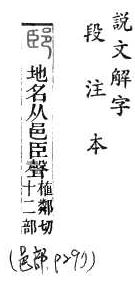 說文解字
段注本
䢻
地名从邑臣聲
植鄰切
十二部
(邑部 p291)